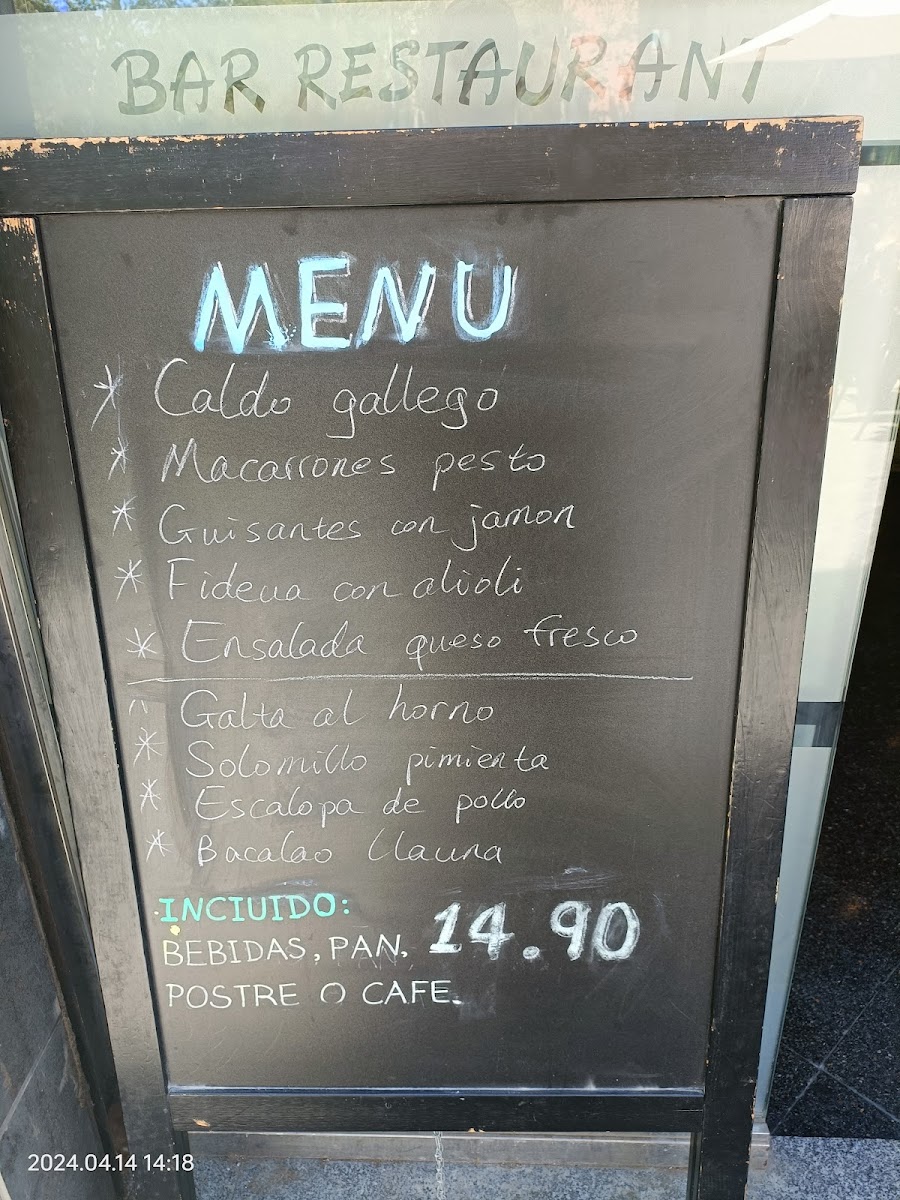 BAR RESTAURANT
MENU
* Caldo gallego
* Macarrones pesto
* Guisantes con jamon
* Fideua con alioli
* Ensalada queso fresco
Galta al horno
* Solomillo pimienta
* Escalopa de pollo
* Bacalao llauna
INCIUIDO:
BEBIDAS, PAN, 14.90
POSTRE O CAFE.
2024.04.14 14:18